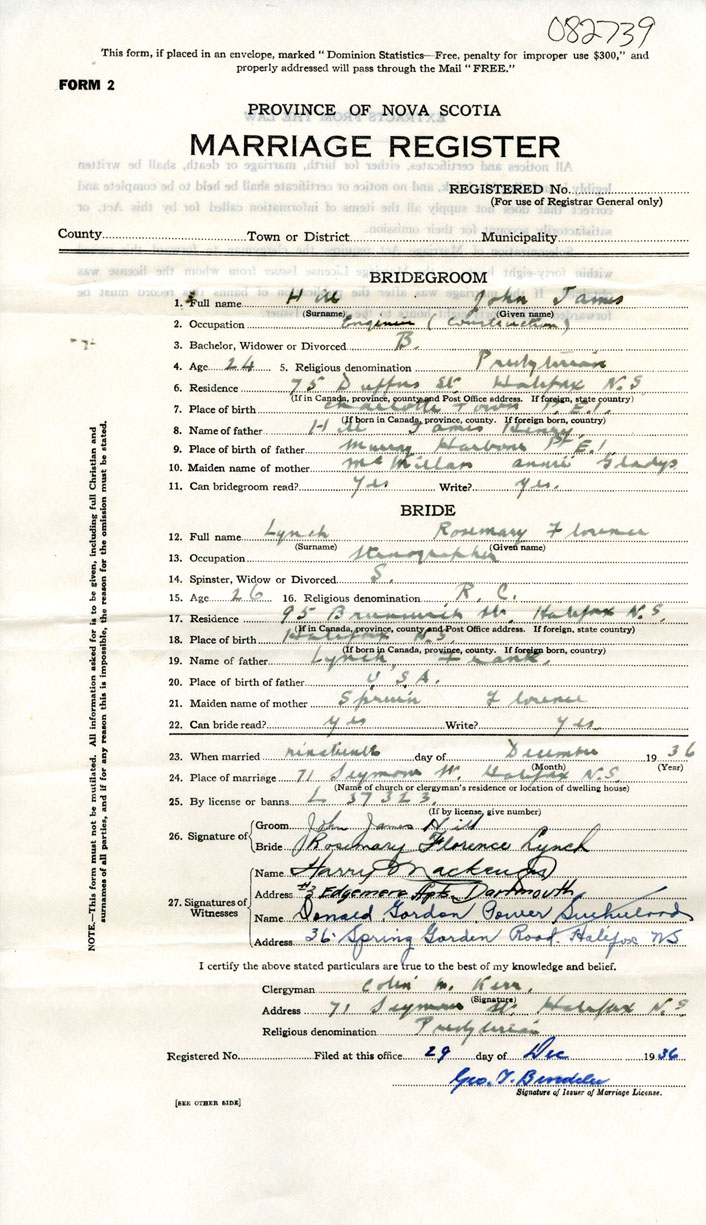 082739
This form, if placed in an envelope, marked "Dominion Statistics—Free, penalty for improper use $300," and
properly addressed will pass through the Mail "FREE."
FORM 2
PROVINCE OF NOVA SCOTIA
MARRIAGE REGISTER
REGISTERED No.
(For use of Registrar General only)
County Town or District Municipality
BRIDEGROOM
1. Full name Hill John James
(Surname) (Given name)
2. Occupation Engineer (Construction)
3. Bachelor, Widower or Divorced B.
4. Age 24 5. Religious denomination Presbyterian
6. Residence 75 Duffus St. Halifax N.S
(If in Canada, province, county and Post Office address. If foreign, state country)
7. Place of birth Charlotte Town P.E.I.
(If born in Canada, province, county. If foreign born, country)
8. Name of father Hill James Henry
9. Place of birth of father Murray Harbour P.E.I.
10. Maiden name of mother McMillan Annie Gladys
11. Can bridegroom read? Yes Write? Yes.
BRIDE
12. Full name Lynch Rosemary Florence
(Surname) (Given name)
13. Occupation Stenographer
14. Spinster, Widow or Divorced S.
15. Age 26 16. Religious denomination R. C.
17. Residence 95 Brunswick St. Halifax N.S.
(If in Canada, province, county and Post Office address. If foreign, state country)
18. Place of birth Halifax N.S.
(If born in Canada, province, county. If foreign born, country)
19. Name of father Lynch Frank.
20. Place of birth of father U.S.A.
21. Maiden name of mother Florence
22. Can bride read? Yes Write? Yes.
23. When married nineteenth day of December 1936
(Month) (Year)
24. Place of marriage 71 Seymour St. Halifax N.S.
(Name of church or clergyman's residence or location of dwelling house)
25. By license or banns L 37323.
(If by license, give number)
26. Signature of Groom John James Hill
Bride Rosemary Florence Lynch
27. Signatures of Witnesses Name Harry Mackenzie
Address #3 Edgemere Apts. Dartmouth
Name Donald Gordon Power
Address 36 Spring Garden Road. Halifax NS
I certify the above stated particulars are true to the best of my knowledge and belief.
Clergyman Colin M. Kerr.
(Signature)
Address 71 Seymour St. Halifax N.S
Religious denomination Presbyterian
Registered No. Filed at this office 29 day of Dec 1936
Geo. T.
Signature of Issuer of Marriage License.
[SEE OTHER SIDE]
NOTE.—This form must not be mutilated. All information asked for is to be given, including full Christian and
surnames of all parties, and if for any reason this is impossible, the reason for the omission must be stated.